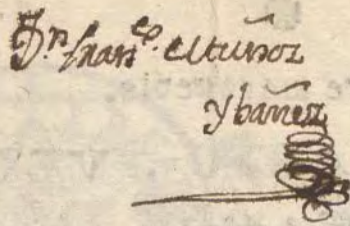 Dn. Franco. Muñoz
Ybañez